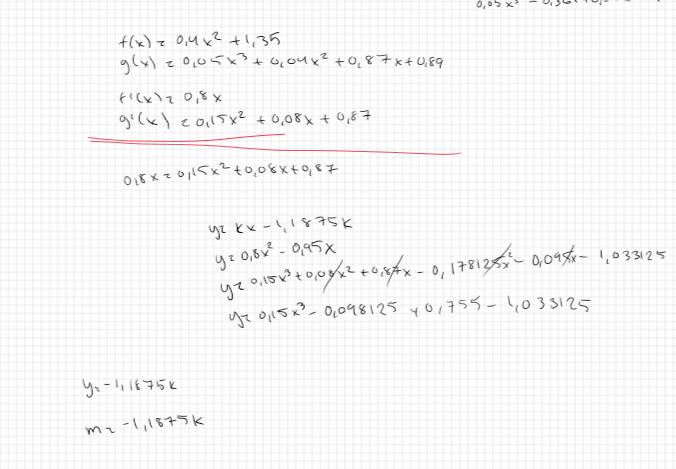 f(x) = 0,4x² + 1,35
g(x) = 0,05x³ + 0,04x² + 0,87x + 0,89
f'(x) = 0,8x
g'(x) = 0,15x² + 0,08x + 0,87
0,8x = 0,15x² + 0,08x + 0,87
y = kx - 1,1875k
y = 0,8x² - 0,95x
y = 0,15x³ + 0,08x² + 0,87x - 0,178125x² - 0,095x - 1,033125
y = 0,15x³ - 0,098125 + 0,755 - 1,033125
y = -1,1875k
m = -1,1875k